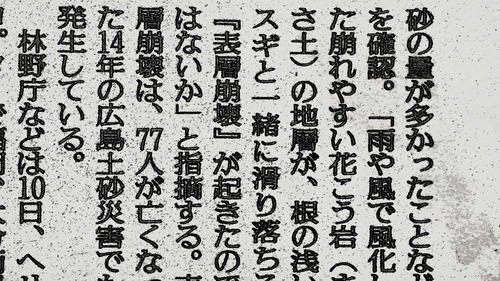 砂の量が多かったことなど
を確認。「雨や風で風化し
た崩れやすい花こう岩（ま
さ土）の地層が、根の浅い
スギと一緒に滑り落ちる
『表層崩壊』が起きたので
はないか」と指摘する。表
層崩壊は、77人が亡くなっ
た14年の広島土砂災害でも
発生している。
林野庁などは10日、ヘリ